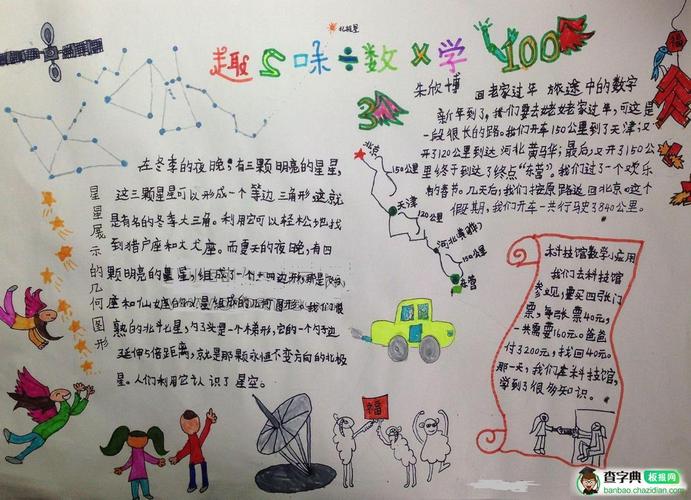 北极星
趣味÷数×学
100
朱欣博
回老家过年 旅途中的数字
新年到了,我们要去姥姥老家过年,可这是
一段很长的路。我们开车150公里到了天津,又
开了120公里到达河北黄骅,最后又开了150公
里终于到达了终点"东营"。我们过了一个欢乐
的春节。几天后,我们按原路返回北京。这个
假期,我们开车一共行驶了840公里。
3
北京
150公里
天津
120公里
河北(黄骅)
150公里
东营
星星展示的几何图形
在冬季的夜晚,有三颗明亮的星星,
这三颗星星可以形成一个等边三角形,这就
是有名的冬季大三角。利用它可以轻松地找
到猎户座和大犬座。而夏天的夜晚,有四
颗明亮的星星,组成了一个四边形,那是
座和仙 座 星组成的几何图形。我们
熟的北斗星,勺子头是一个梯形,它的一个勺子边
延伸5倍距离,就是那颗永恒不变方向的北极
星。人们利用它认识了星空。
科技馆数学小应用
我们去科技馆
参观,要买四张门
票,每张票40元,
一共需要160元。爸爸
付了200元,找回40元。
那一天,我们逛科技馆,
学到了很多知识。
福
查字典 板报网
banbao.chazidian.com